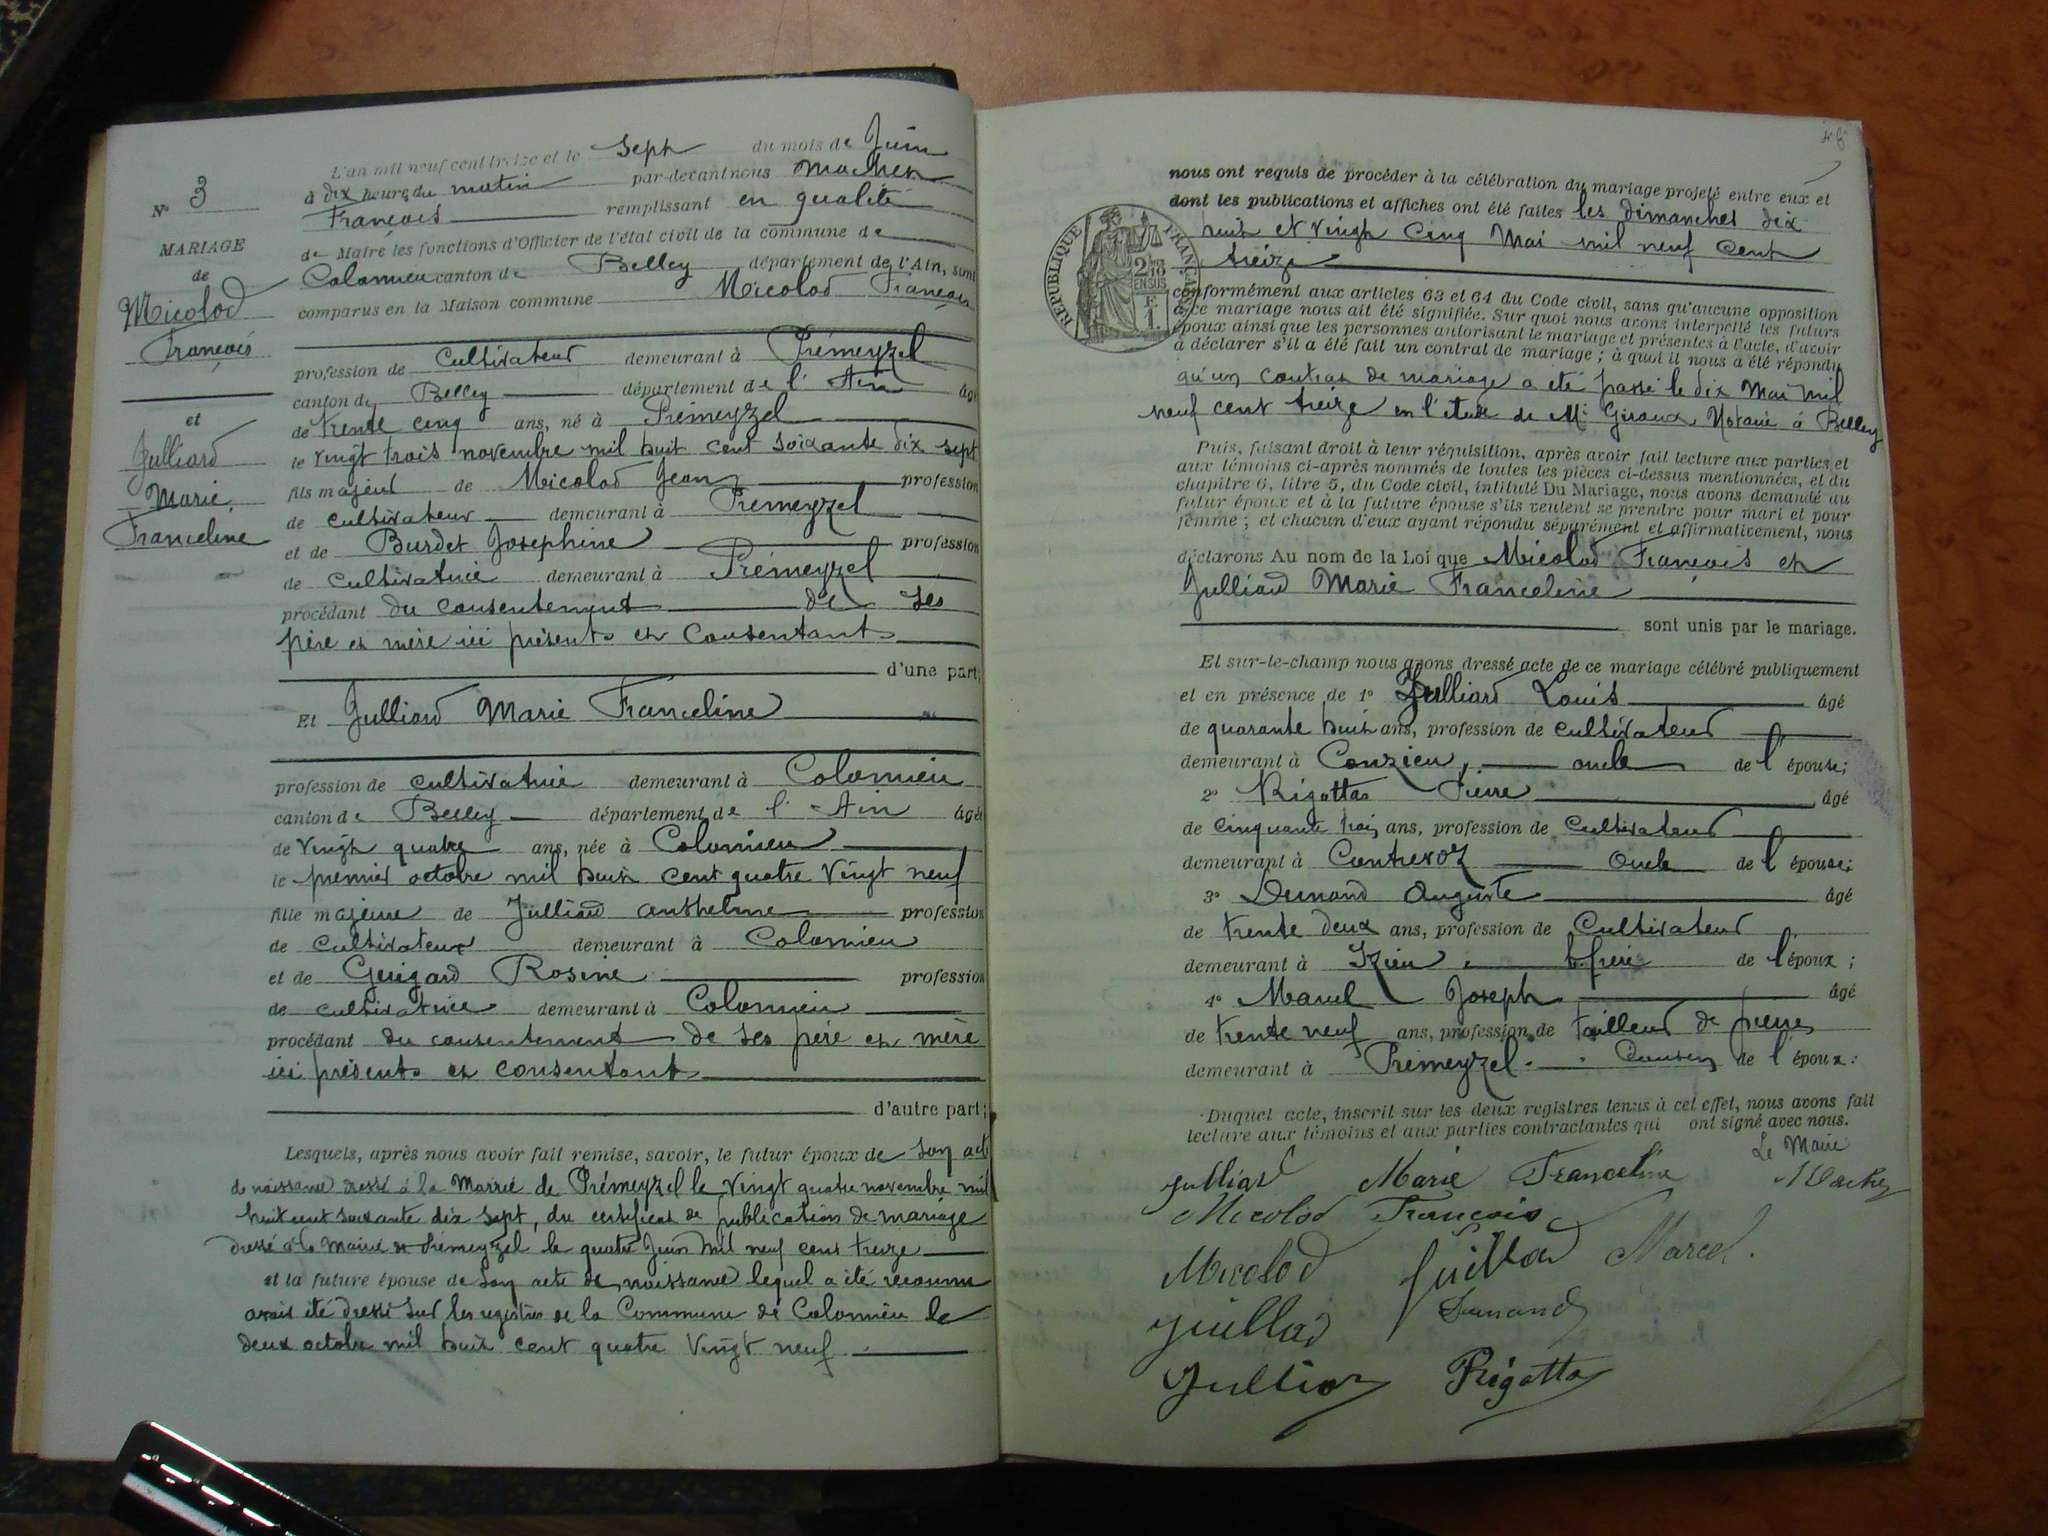 N° 3
MARIAGE
de
Micolod
François
et
Julliard
Marie
Franceline
L'an mil neuf cent treize et le sept du mois de Juin
à dix heures du matin par-devant nous Machex
François remplissant en qualité
de Maire les fonctions d'Officier de l'état civil de la commune de
Colomieu canton de Belley département de l'Ain, sont
comparus en la Maison commune Micolod François
profession de Cultivateur demeurant à Prémeyzel
canton de Belley département de l'Ain âgé
de trente cinq ans, né à Prémeyzel
le vingt trois novembre mil huit cent soixante dix sept
fils majeur de Micolod Jean profession
de cultivateur demeurant à Prémeyzel
et de Burdet Josephine profession
de cultivatrice demeurant à Prémeyzel
procédant du consentement de ses
père et mère ici présents et consentants
d'une part;
Et Julliard Marie Franceline
profession de cultivatrice demeurant à Colomieu
canton de Belley département de l'Ain âgée
de vingt quatre ans, née à Colomieu
le premier octobre mil huit cent quatre vingt neuf
fille majeure de Julliard Anthelme profession
de cultivateur demeurant à Colomieu
et de Guigard Rosine profession
de cultivatrice demeurant à Colomieu
procédant du consentement de ses père et mère
ici présents et consentant
d'autre part;
Lesquels, après nous avoir fait remise, savoir, le futur époux de son act
de naissance dressé à la Mairie de Prémeyzel le vingt quatre novembre mil
huit cent soixante dix sept, du certificat de publication de mariage
dressé à la Mairie de Prémeyzel le quatre Juin mil neuf cent treize
et la future épouse de son acte de naissance lequel a été reconnu
avoir été dressé sur les registres de la Commune de Colomieu le
deux octobre mil huit cent quatre vingt neuf
nous ont requis de procéder à la célébration du mariage projeté entre eux et
dont les publications et affiches ont été faites les dimanches dix
huit et vingt cinq Mai mil neuf cent
treize
RÉPUBLIQUE FRANÇAISE
2/10 EN SUS
F. 1.
conformément aux articles 63 et 64 du Code civil, sans qu'aucune opposition
à ce mariage nous ait été signifiée. Sur quoi nous avons interpellé les futurs
époux ainsi que les personnes autorisant le mariage et présentes à l'acte, d'avoir
à déclarer s'il a été fait un contrat de mariage ; à quoi il nous a été répondu
qu'un contrat de mariage a été passé le dix Mai mil
neuf cent treize en l'étude de Me Giroux, Notaire à Belley
Puis, faisant droit à leur réquisition, après avoir fait lecture aux parties et
aux témoins ci-après nommés de toutes les pièces ci-dessus mentionnées, et du
chapitre 6, titre 5, du Code civil, intitulé Du Mariage, nous avons demandé au
futur époux et à la future épouse s'ils veulent se prendre pour mari et pour
femme ; et chacun d'eux ayant répondu séparément et affirmativement, nous
déclarons Au nom de la Loi que Micolod François et
Julliard Marie Franceline
sont unis par le mariage.
Et sur-le-champ nous avons dressé acte de ce mariage célébré publiquement
et en présence de 1° Julliard Louis âgé
de quarante huit ans, profession de cultivateur
demeurant à Conzieu, oncle de l'épouse;
2° Rigottas Pierre âgé
de cinquante trois ans, profession de Cultivateur
demeurant à Contrevoz Oncle de l'épouse;
3° Dumand Auguste âgé
de trente deux ans, profession de Cultivateur
demeurant à Izieu b. frère de l'époux ;
4° Marcel Joseph âgé
de trente neuf ans, profession de tailleur de pierres
demeurant à Prémeyzel. Cousin de l'époux :
Duquel acte, inscrit sur les deux registres tenus à cet effet, nous avons fait
lecture aux témoins et aux parties contractantes qui ont signé avec nous.
Le Maire
julliard Marie Franceline Machex
Micolod François
Micolod Juillad Marcel.
Juillad Dumand
Jullia Rigotta